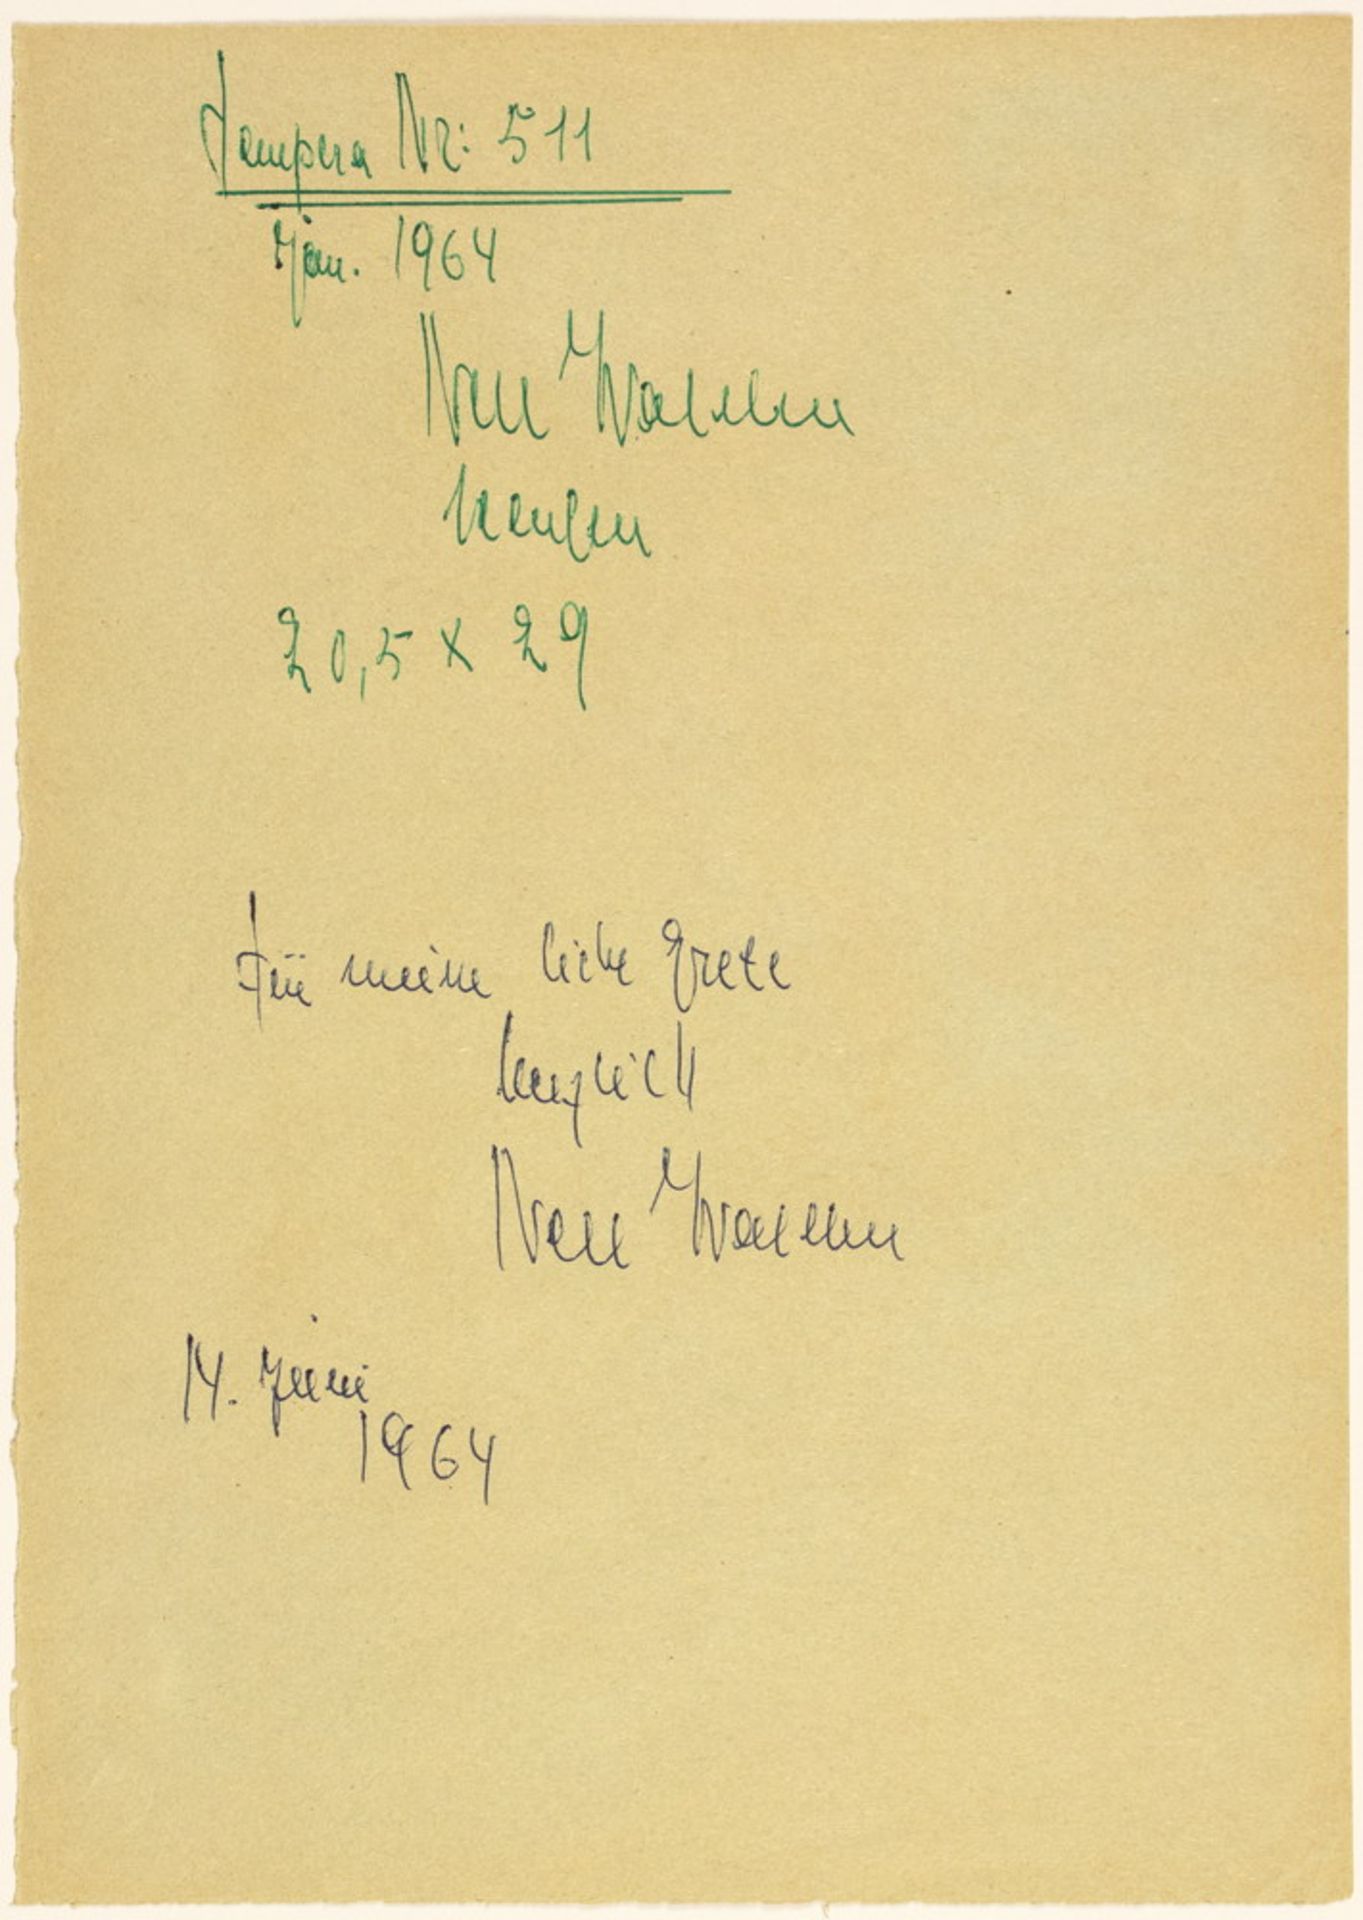 Tempera Nr: 511
Jan. 1964
Nell Walden
20,5 x 29
Für meine liebe Grete
herzlich
Nell Walden
14. Juni
1964